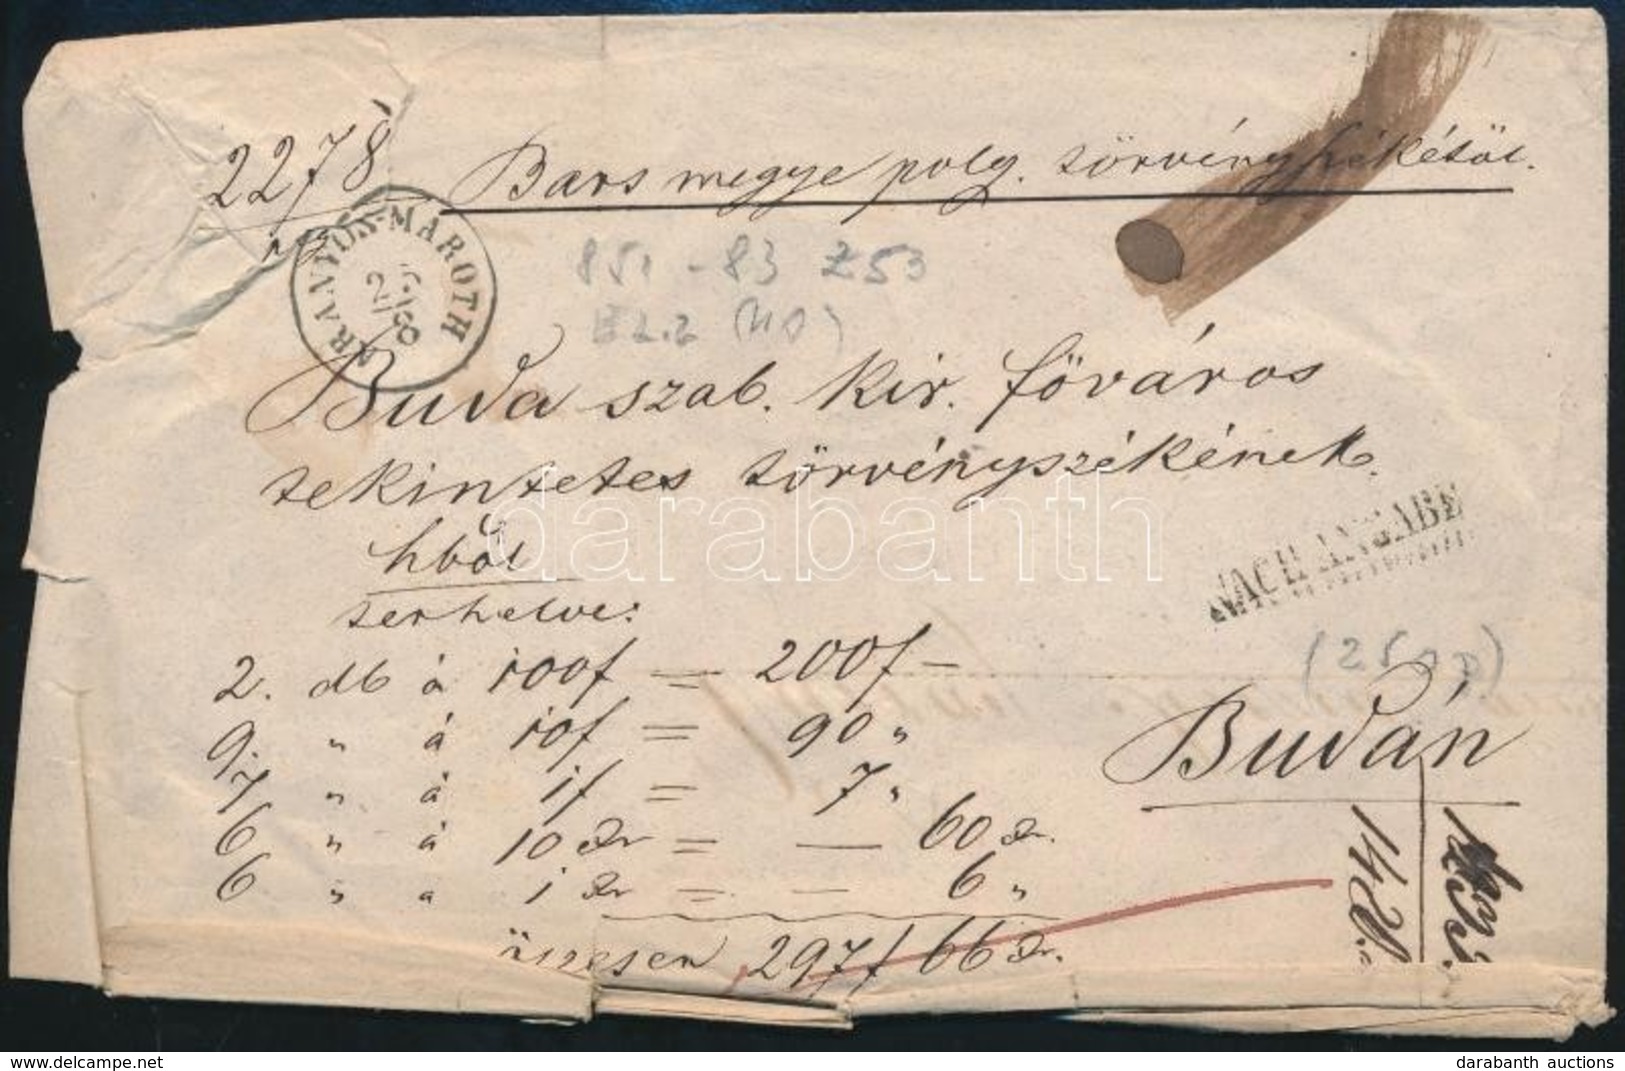 2278 Bars megye polg. törvényszékétöl.
ARANYOS-MAROTH
851 - 83 Z53
Buda szab. kir. főváros
tekintetes törvényszékének.
hből
terhelve:
NACH ANGABE
2. db á 100f = 200f —
9. " á 10f = 90 "
7 " á 1f = 7 "
6 " á 10 xr = — 60 xr.
6 " á 1 xr = — 6 "
összesen 297f 66 xr.
Budán
darabanth
www.delcampe.net
darabanth auctions